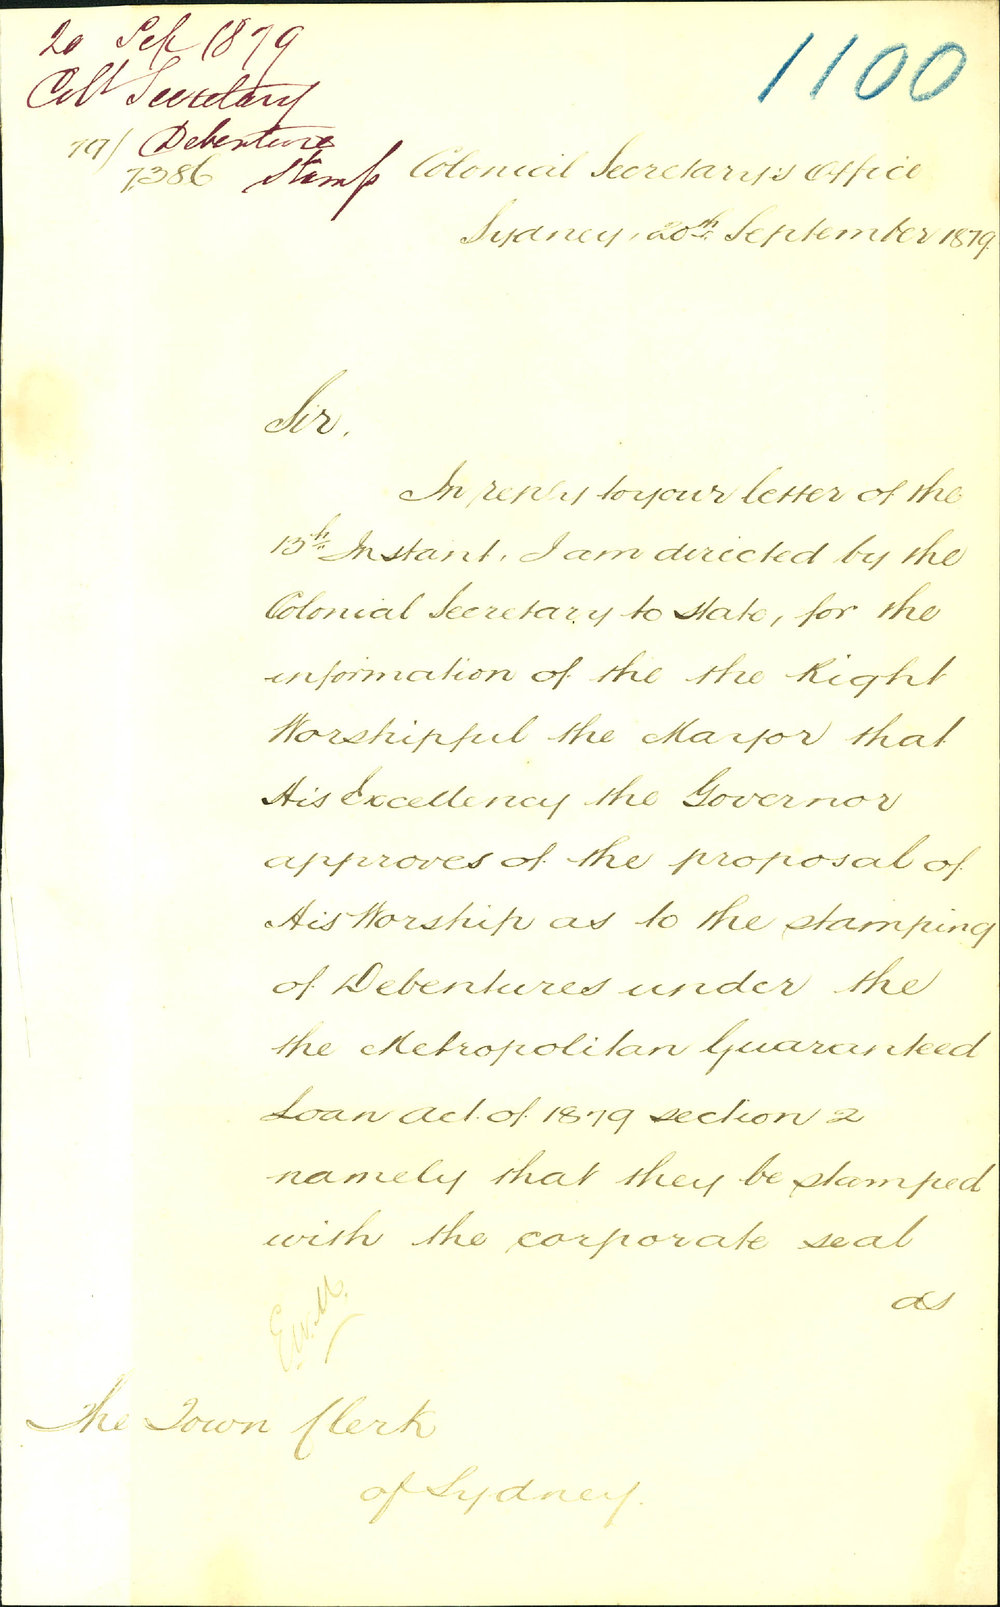 20 Sep 1879
Coll Secretary
79/ Debenture
7386 Stamp
1100
Colonial Secretary's Office
Sydney, 20th September 1879.
Sir.
In reply to your letter of the
15th Instant, I am directed by the
Colonial Secretary to state, for the
information of the the Right
Worshipful the Mayor that
His Excellency the Governor
approves of the proposal of
His Worship as to the stamping
of Debentures under the
the Metropolitan Guaranteed
Loan Act of 1879 section 2
namely that they be stamped
with the corporate seal
as
The Town Clerk
of Sydney.